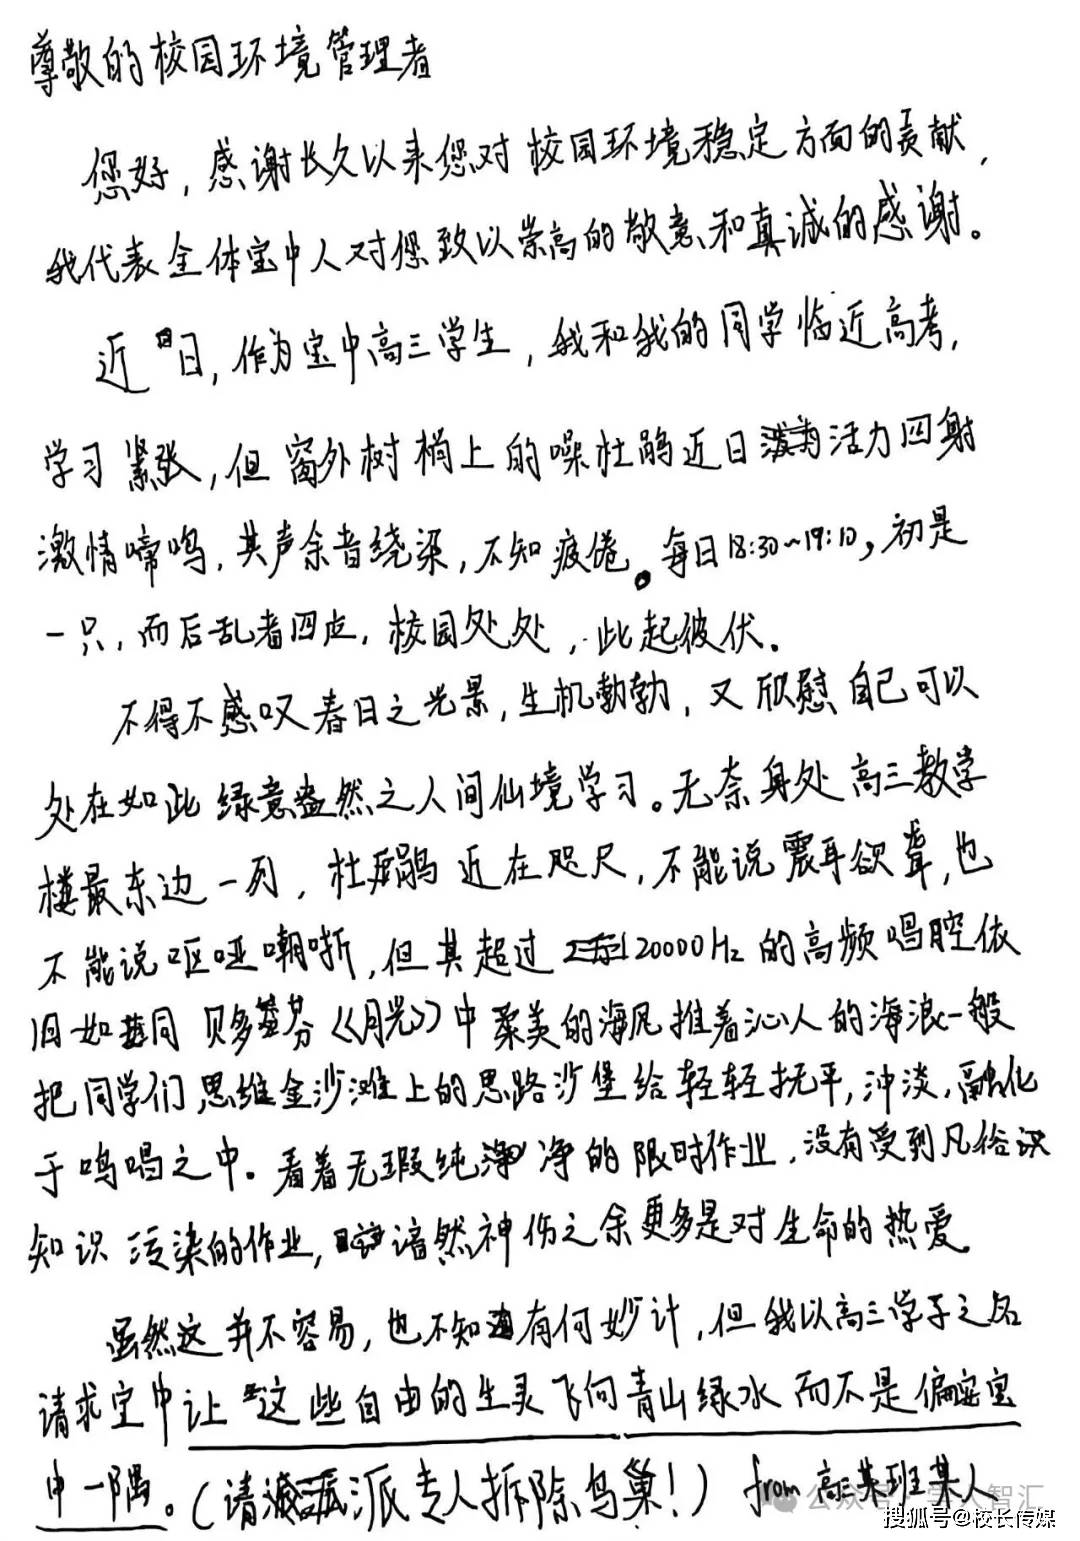 尊敬的校园环境管理者
您好，感谢长久以来您对校园环境稳定方面的贡献，
我代表全体宝中人对您致以崇高的敬意和真诚的感谢。
近日，作为宝中高三学生，我和我的同学临近高考，
学习紧张，但窗外树梢上的噪杜鹃近日活力四射
激情啼鸣，其声余音绕梁，不知疲倦。每日18:30~19:10，初是
一只，而后乱者四应，校园处处，此起彼伏。
不得不感叹春日之光景，生机勃勃，又欣慰自己可以
处在如此绿意盎然之人间仙境学习。无奈身处高三教学
楼最东边一列，杜鹃近在咫尺，不能说震耳欲聋，也
不能说呕哑嘲哳，但其超过20000Hz的高频唱腔依
旧如同贝多芬《月光》中柔美的海风推着沁人的海浪一般
把同学们思维金沙滩上的思路沙堡给轻轻抚平，冲淡，融化
于鸣唱之中。看着无瑕纯净的限时作业，没有受到凡俗
知识污染的作业，谙然神伤之余更多是对生命的热爱。
虽然这并不容易，也不知有何妙计，但我以高三学子之名
请求宝中让这些自由的生灵飞向青山绿水而不是偏安宝
中一隅。（请派专人拆除鸟巢！） from 高三某班某人
公众号
智汇
搜狐号@校长传媒